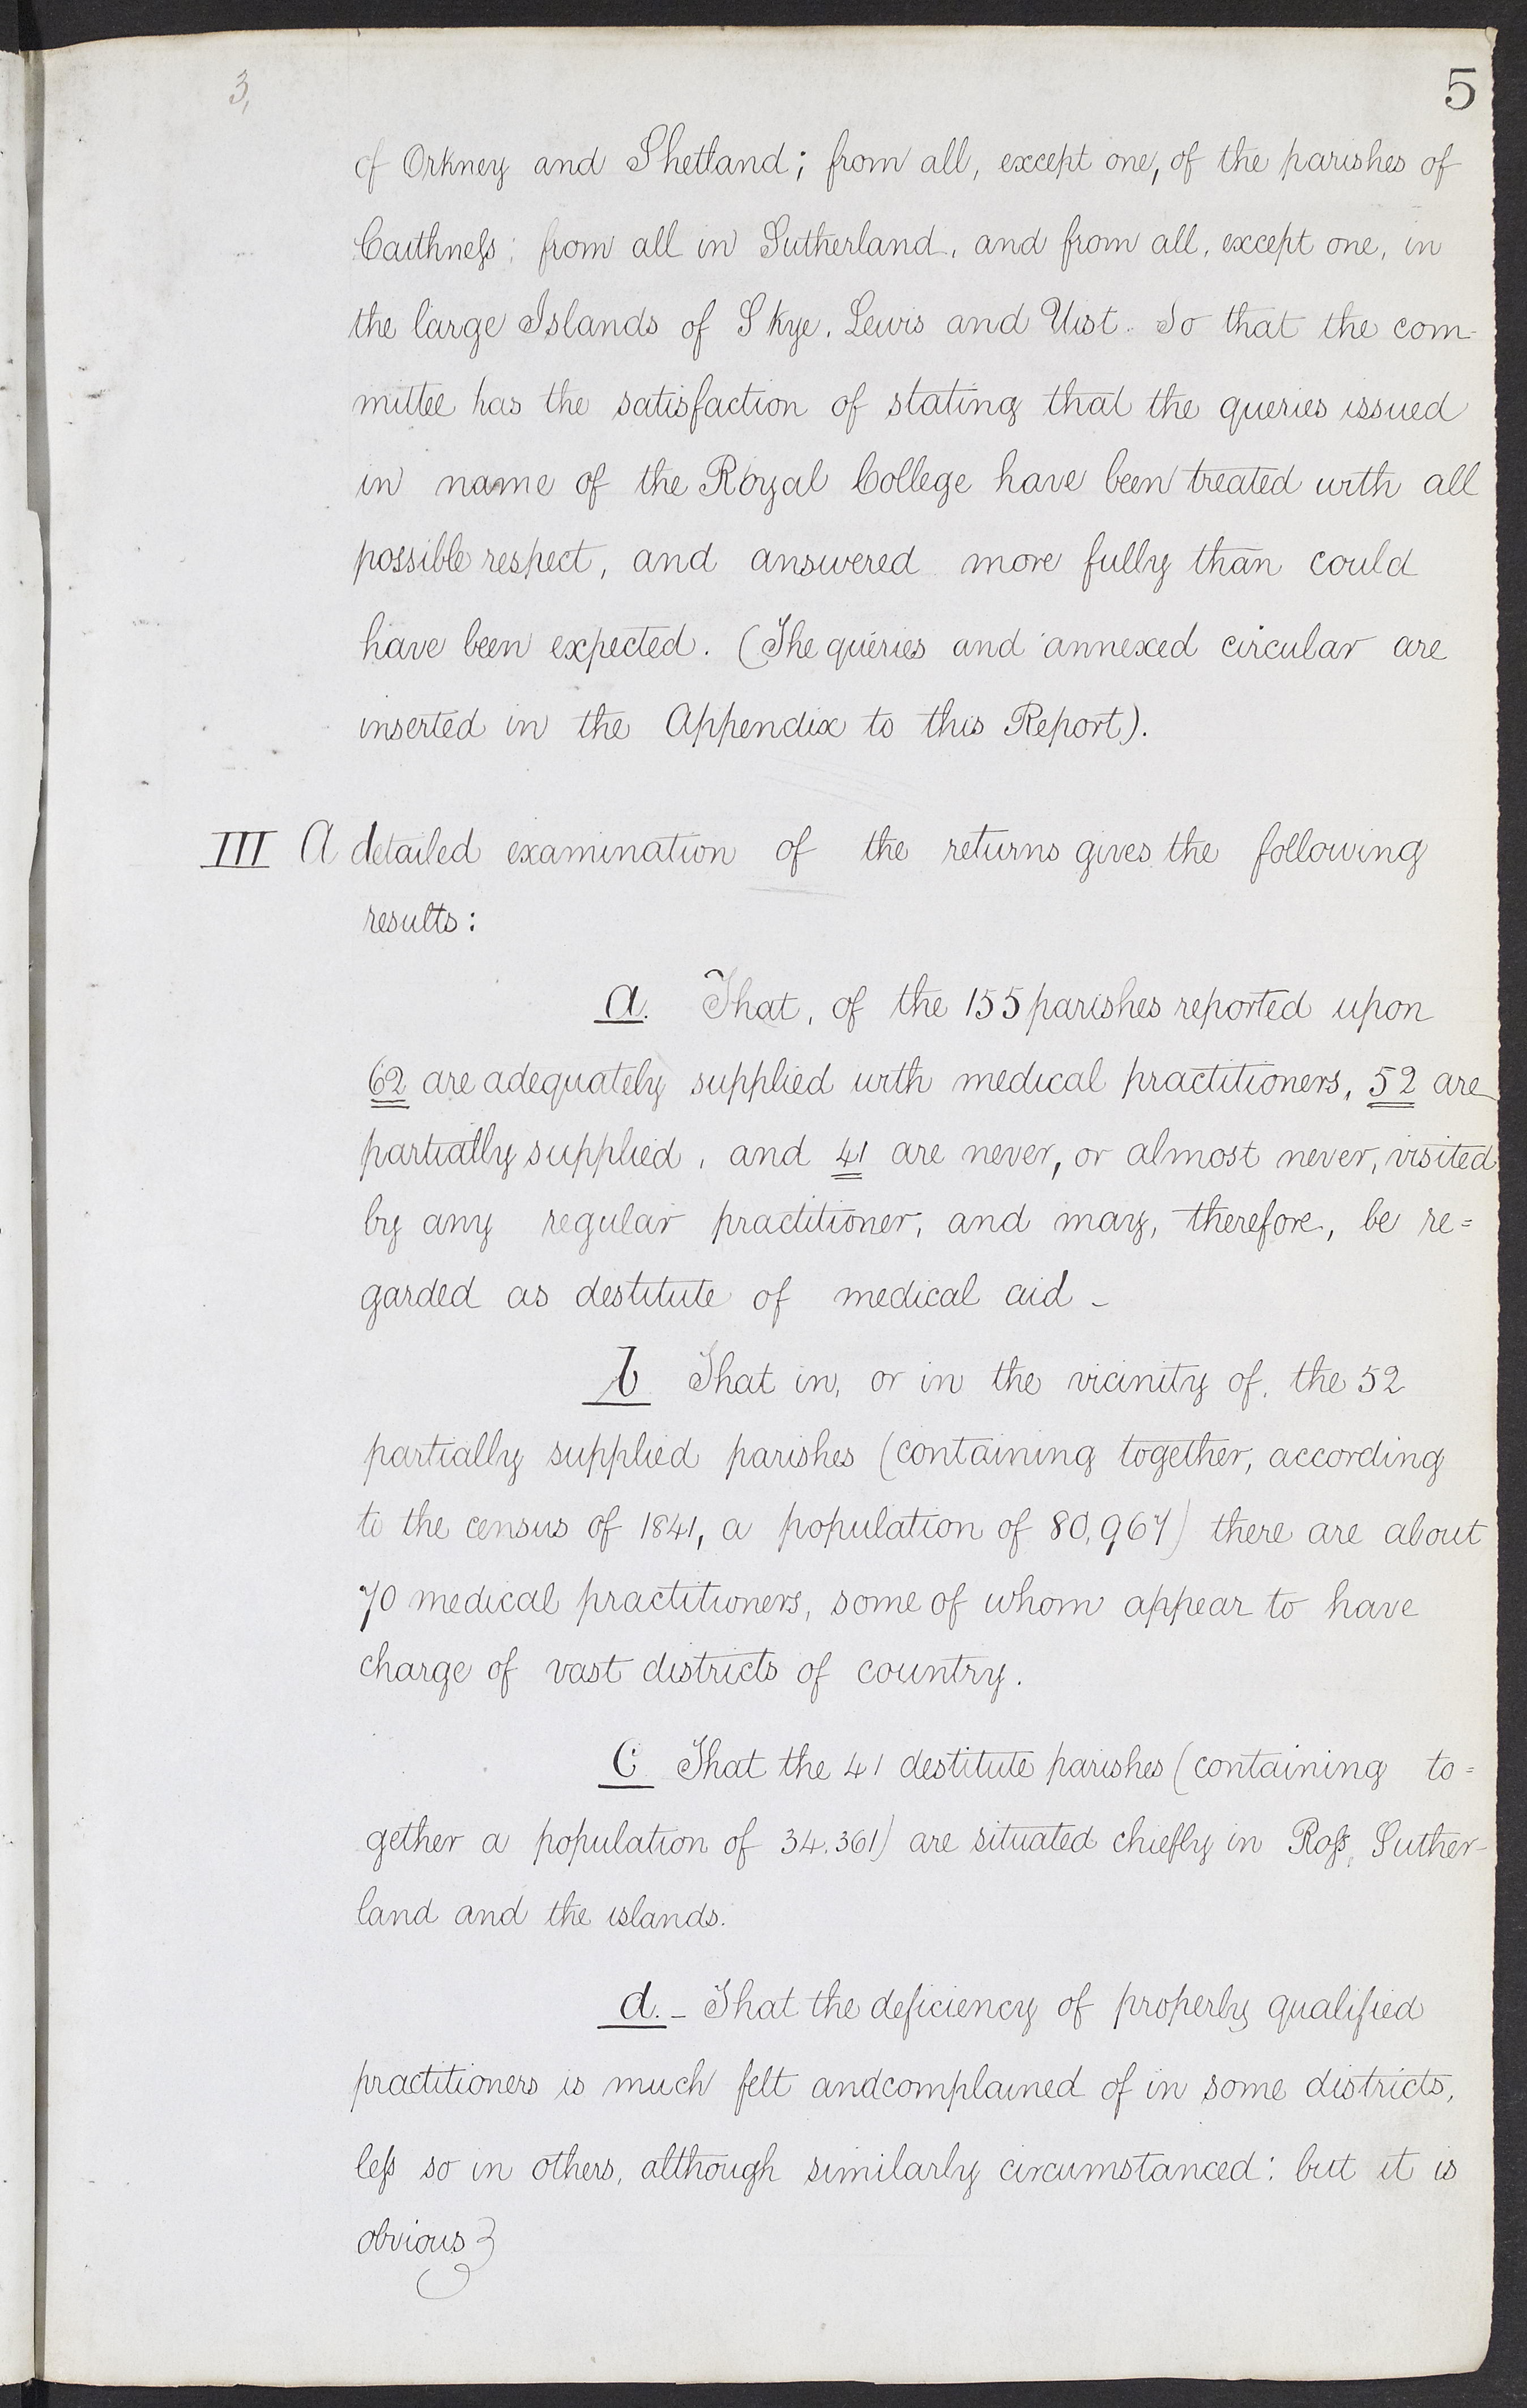 3,
5
of Orkney and Shetland; from all, except one, of the parishes of
Caithneſs; from all in Sutherland, and from all, except one, in
the large Islands of Skye, Lewis and Uist. So that the com-
mittee has the satisfaction of stating that the queries issued
in name of the Royal College have been treated with all
possible respect, and answered more fully than could
have been expected. (The queries and annexed circular are
inserted in the Appendix to this Report).
III A detailed examination of the returns gives the following
results:
a. That, of the 155 parishes reported upon
62 are adequately supplied with medical practitioners, 52 are
partially supplied, and 41 are never, or almost never, visited
by any regular practitioner, and may, therefore, be re=
garded as destitute of medical aid -
b That in, or in the vicinity of, the 52
partially supplied parishes (containing together, according
to the census of 1841, a population of 80,967) there are about
70 medical practitioners, some of whom appear to have
charge of vast districts of country.
C That the 41 destitute parishes (containing to=
gether a population of 34.361) are situated chiefly in Roſs, Suther-
land and the islands.
d. - That the deficiency of properly qualified
practitioners is much felt andcomplained of in some districts,
leſs so in others, although similarly circumstanced: but it is
obvious